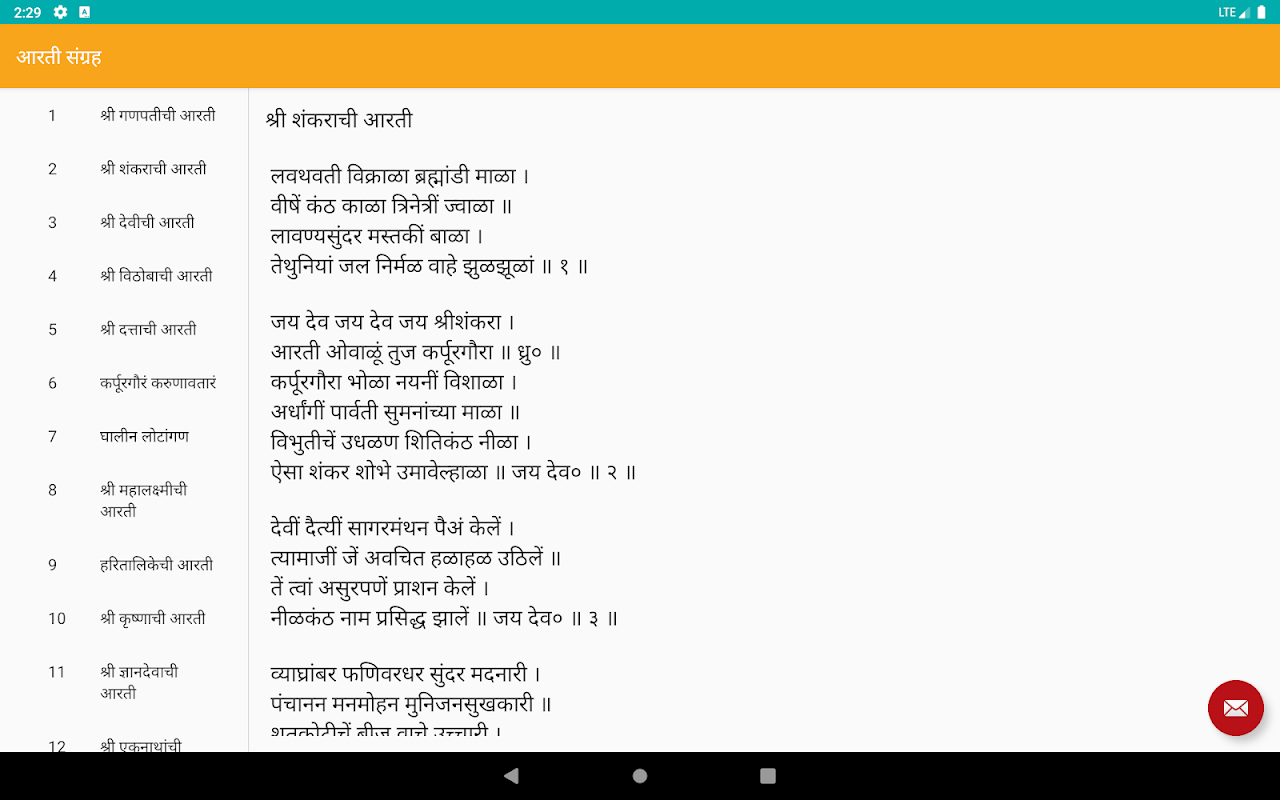 2:29
LTE
आरती संग्रह
1 श्री गणपतीची आरती
2 श्री शंकराची आरती
3 श्री देवीची आरती
4 श्री विठोबाची आरती
5 श्री दत्ताची आरती
6 कर्पूरगौरं करुणावतारं
7 घालीन लोटांगण
8 श्री महालक्ष्मीची
आरती
9 हरितालिकेची आरती
10 श्री कृष्णाची आरती
11 श्री ज्ञानदेवाची
आरती
12 श्री एकनाथांची
श्री शंकराची आरती
लवथवती विक्राळा ब्रह्मांडी माळा ।
वीषें कंठ काळा त्रिनेत्रीं ज्वाळा ॥
लावण्यसुंदर मस्तकीं बाळा ।
तेथुनियां जल निर्मळ वाहे झुळझूळां ॥ १ ॥
जय देव जय देव जय श्रीशंकरा ।
आरती ओवाळूं तुज कर्पूरगौरा ॥ ध्रु० ॥
कर्पूरगौरा भोळा नयनीं विशाळा ।
अर्धांगीं पार्वती सुमनांच्या माळा ॥
विभुतीचें उधळण शितिकंठ नीळा ।
ऐसा शंकर शोभे उमावेल्हाळा ॥ जय देव० ॥ २ ॥
देवीं दैत्यीं सागरमंथन पैअं केलें ।
त्यामाजीं जें अवचित हळाहळ उठिलें ॥
तें त्वां असुरपणें प्राशन केलें ।
नीळकंठ नाम प्रसिद्ध झालें ॥ जय देव० ॥ ३ ॥
व्याघ्रांबर फणिवरधर सुंदर मदनारी ।
पंचानन मनमोहन मुनिजनसुखकारी ॥
शतकोटीचें बीज वाचे उच्चारी ।